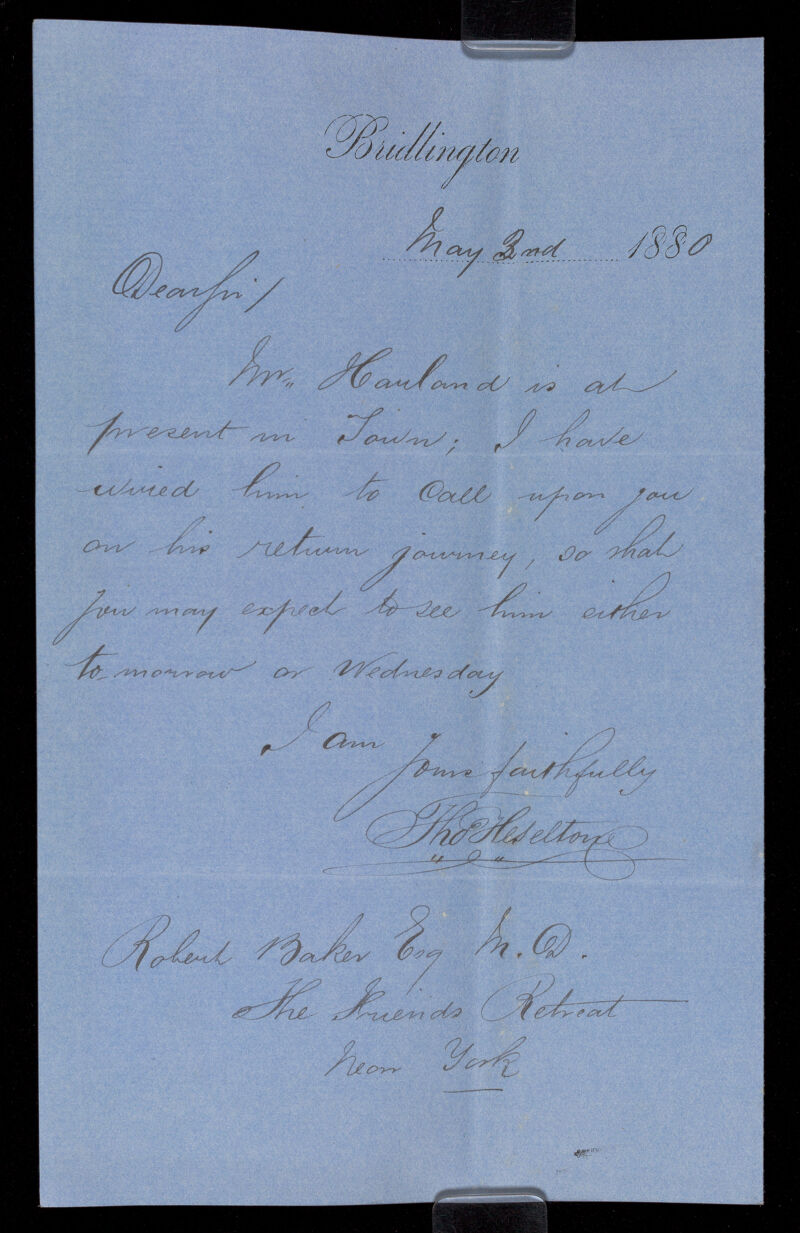 Bridlington
May 2nd 1880
Dear Sir/
Mr. Harland is at
present in Town; I have
wired him to Call upon you
on his return journey, so that
you may expect to see him either
to-morrow or Wednesday
I am
Yours faithfully
Thos Heselton
Robert Baker Esq M.D.
The Friends Retreat
Near York